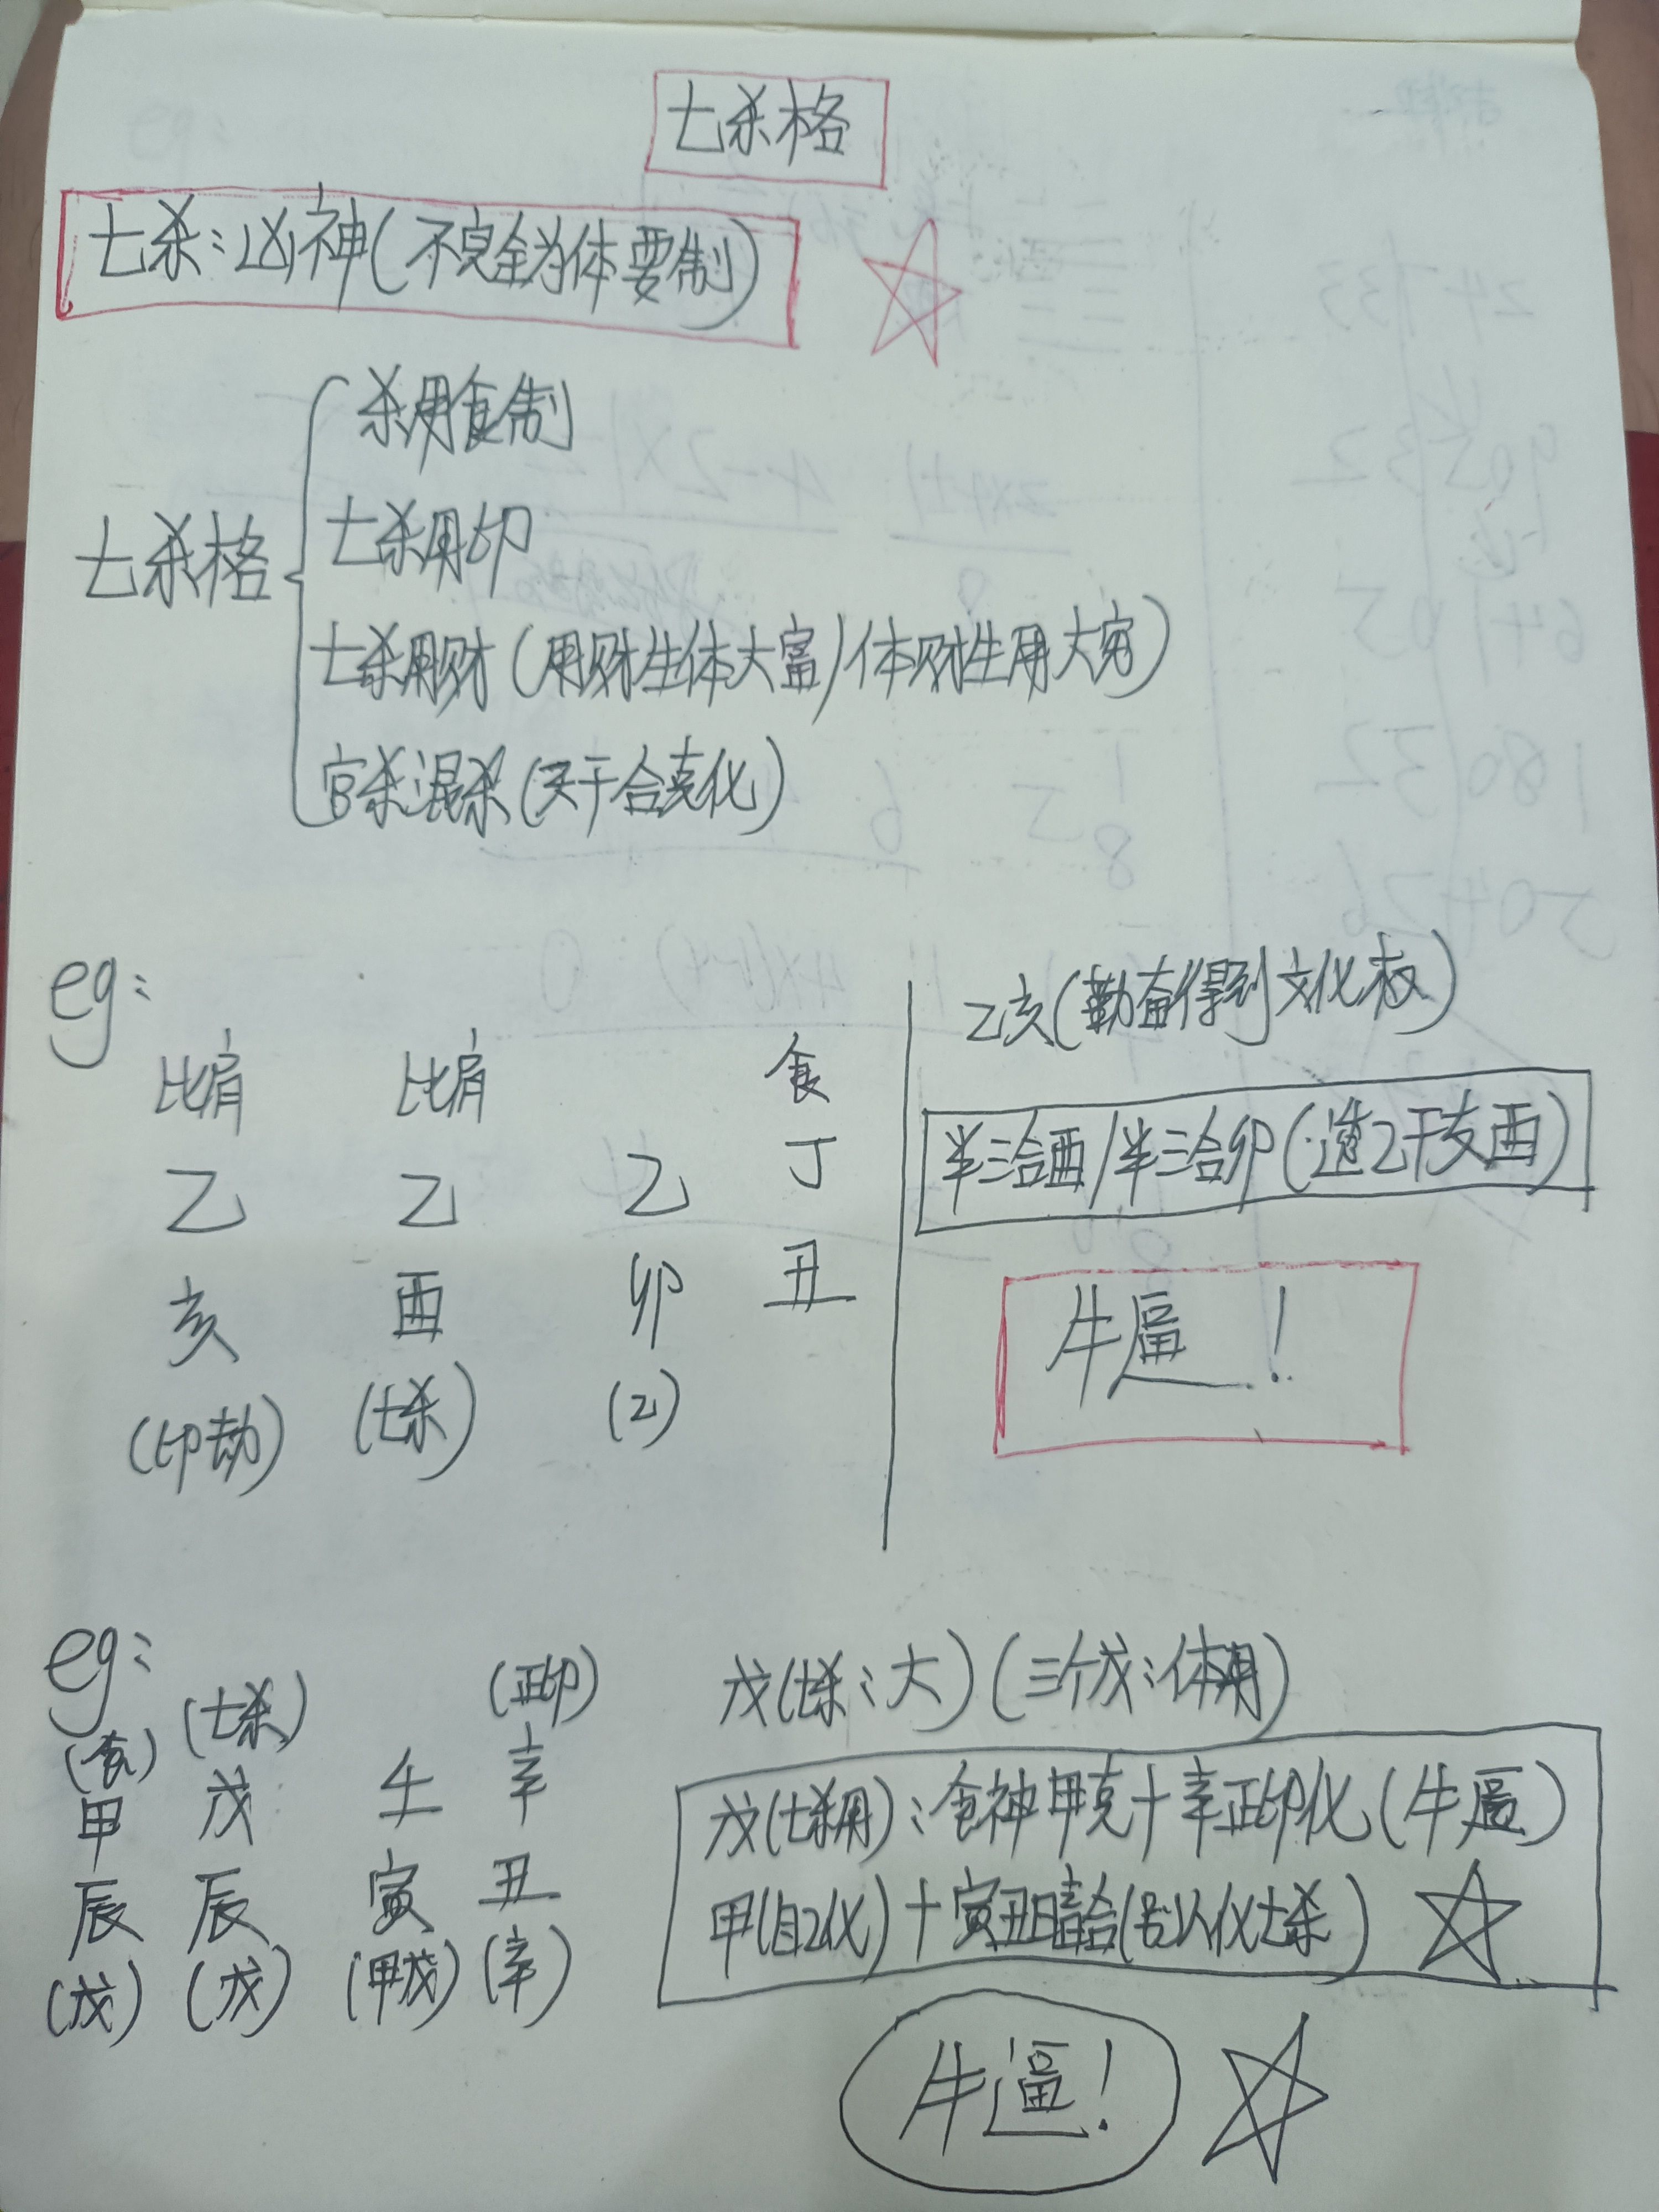 七杀格
七杀：凶神（不完全为体要制）
七杀格
杀用食制
七杀用印
七杀用财（用财生体大富/体财生用大穷）
官杀混杀（天干合克化）
eg：
比肩 比肩 食
乙 乙 乙 丁
亥 酉 卯 丑
（印劫） （七杀） （乙）
乙亥（勤奋得到文化权）
半三合酉/半三合卯（造乙干支西）
牛逼！
eg：
（食） （七杀） （正印）
甲 戊 壬 辛
辰 辰 寅 丑
（戊） （戊） （甲戊） （辛）
戊（七杀：大）（三个戊：体用）
戊（七杀用）：食神甲克+辛正印化（牛逼）
甲（自乙化）+寅丑暗合（另以化七杀）
牛逼！